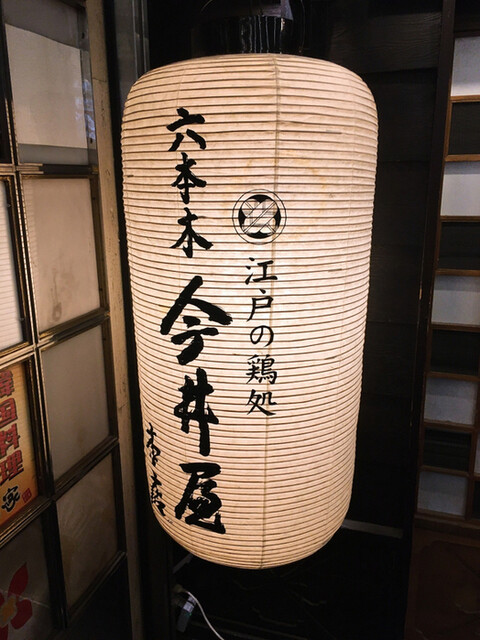 江戸の鶏処
六本木
今井屋
本店
韓国料理